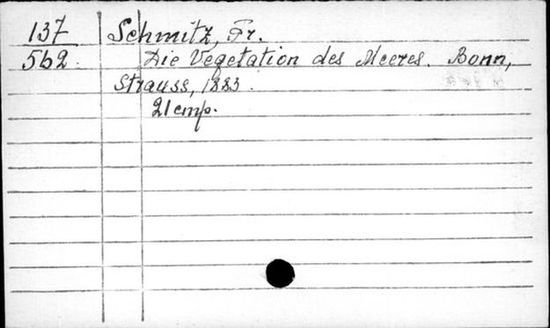 137 Schmitz, Fr.
562. Die Vegetation des Meeres. Bonn,
Strauss, 1883.
21 cmp.